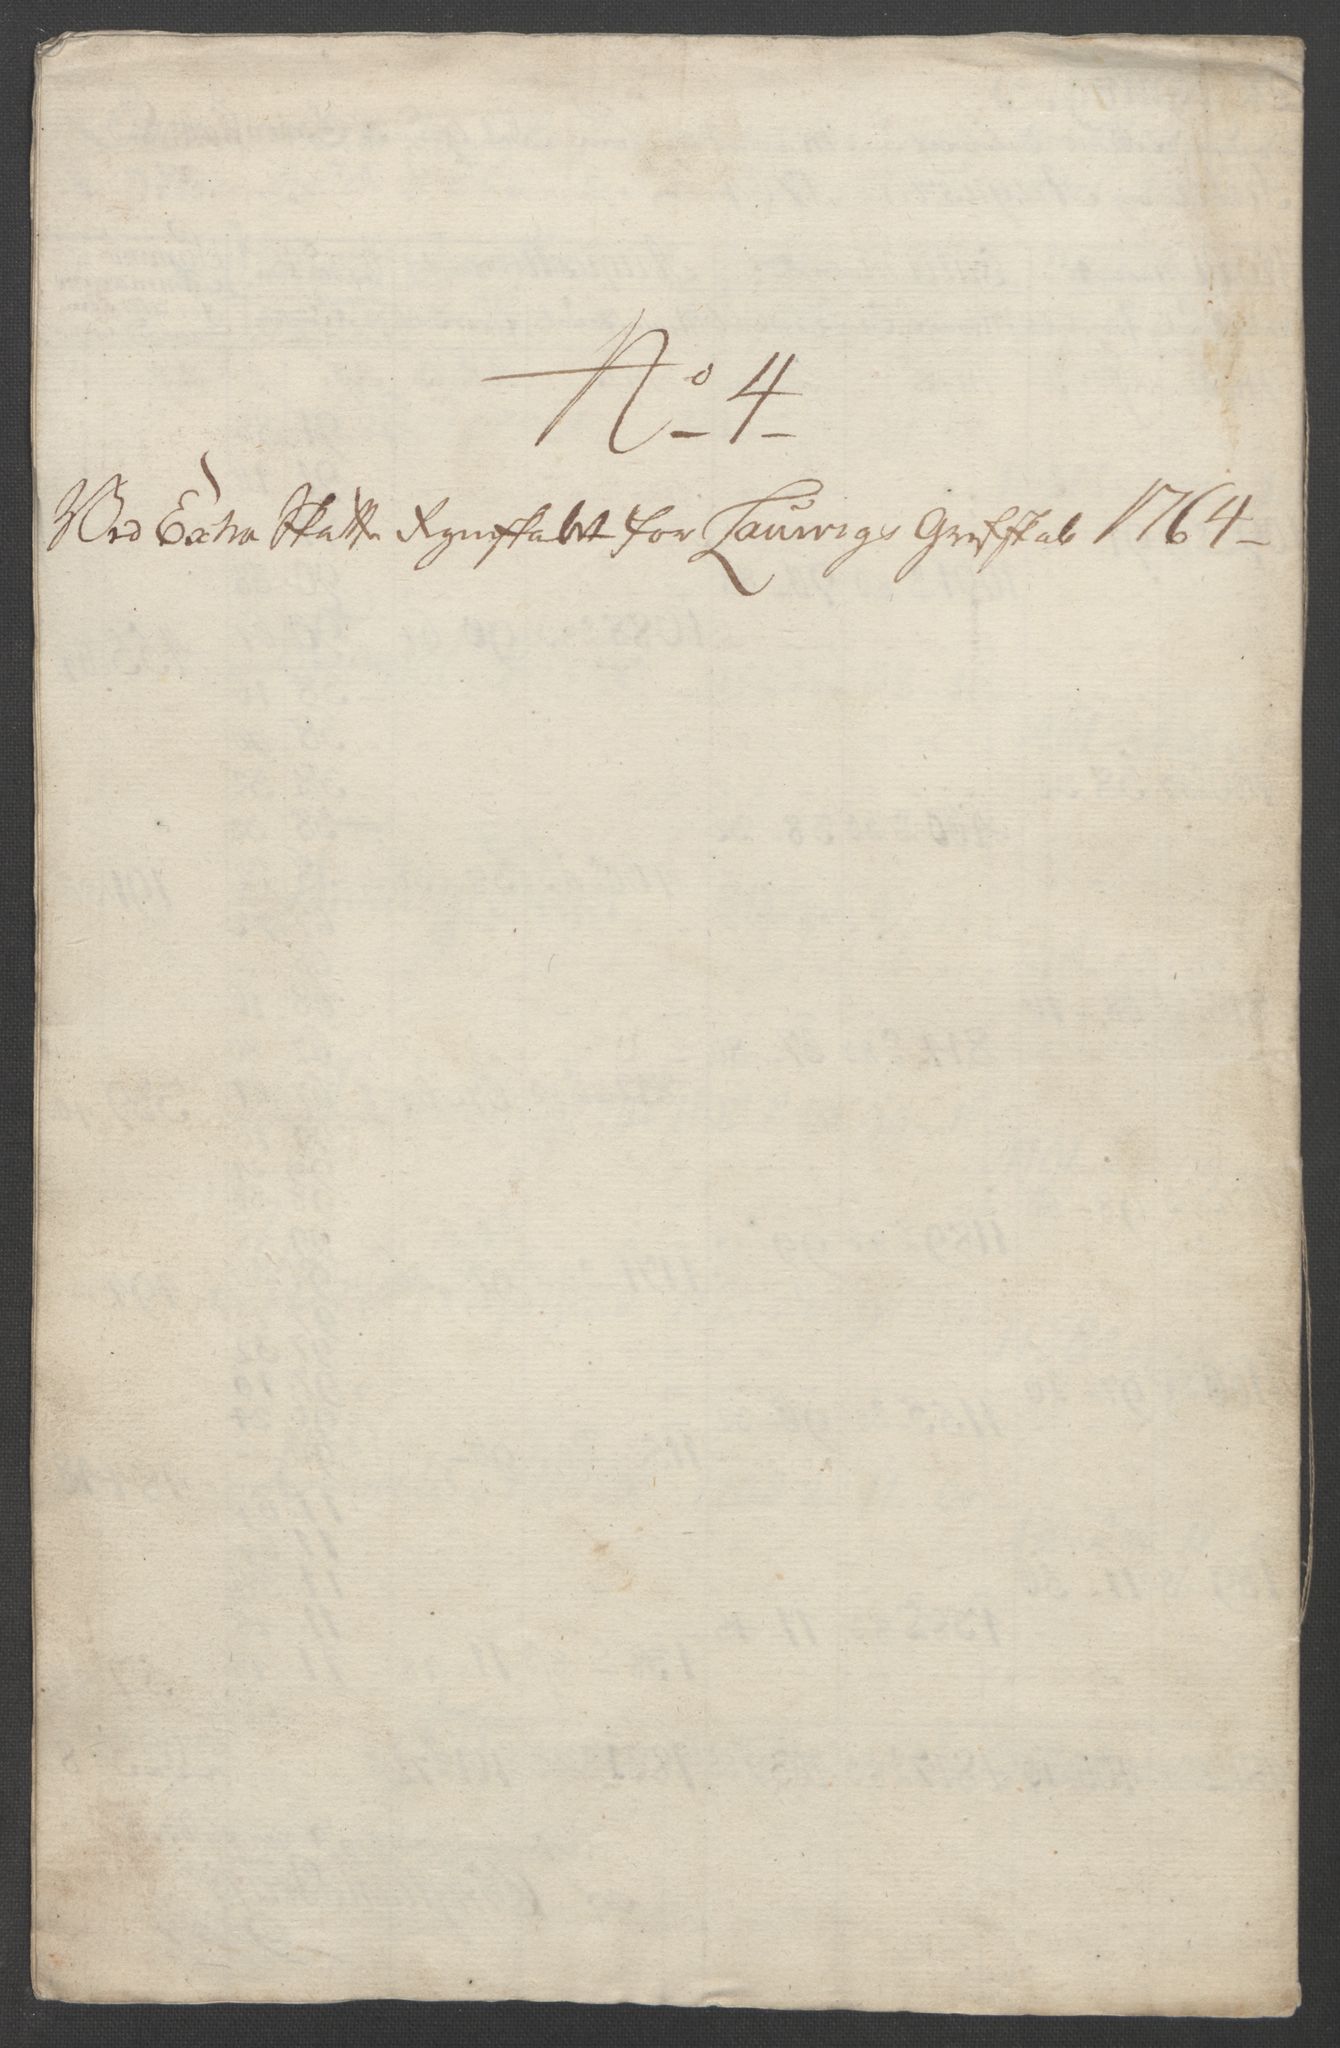 No 4
Ved Extra Skatte Regnskabet for Laurvigs Grefskab 1764